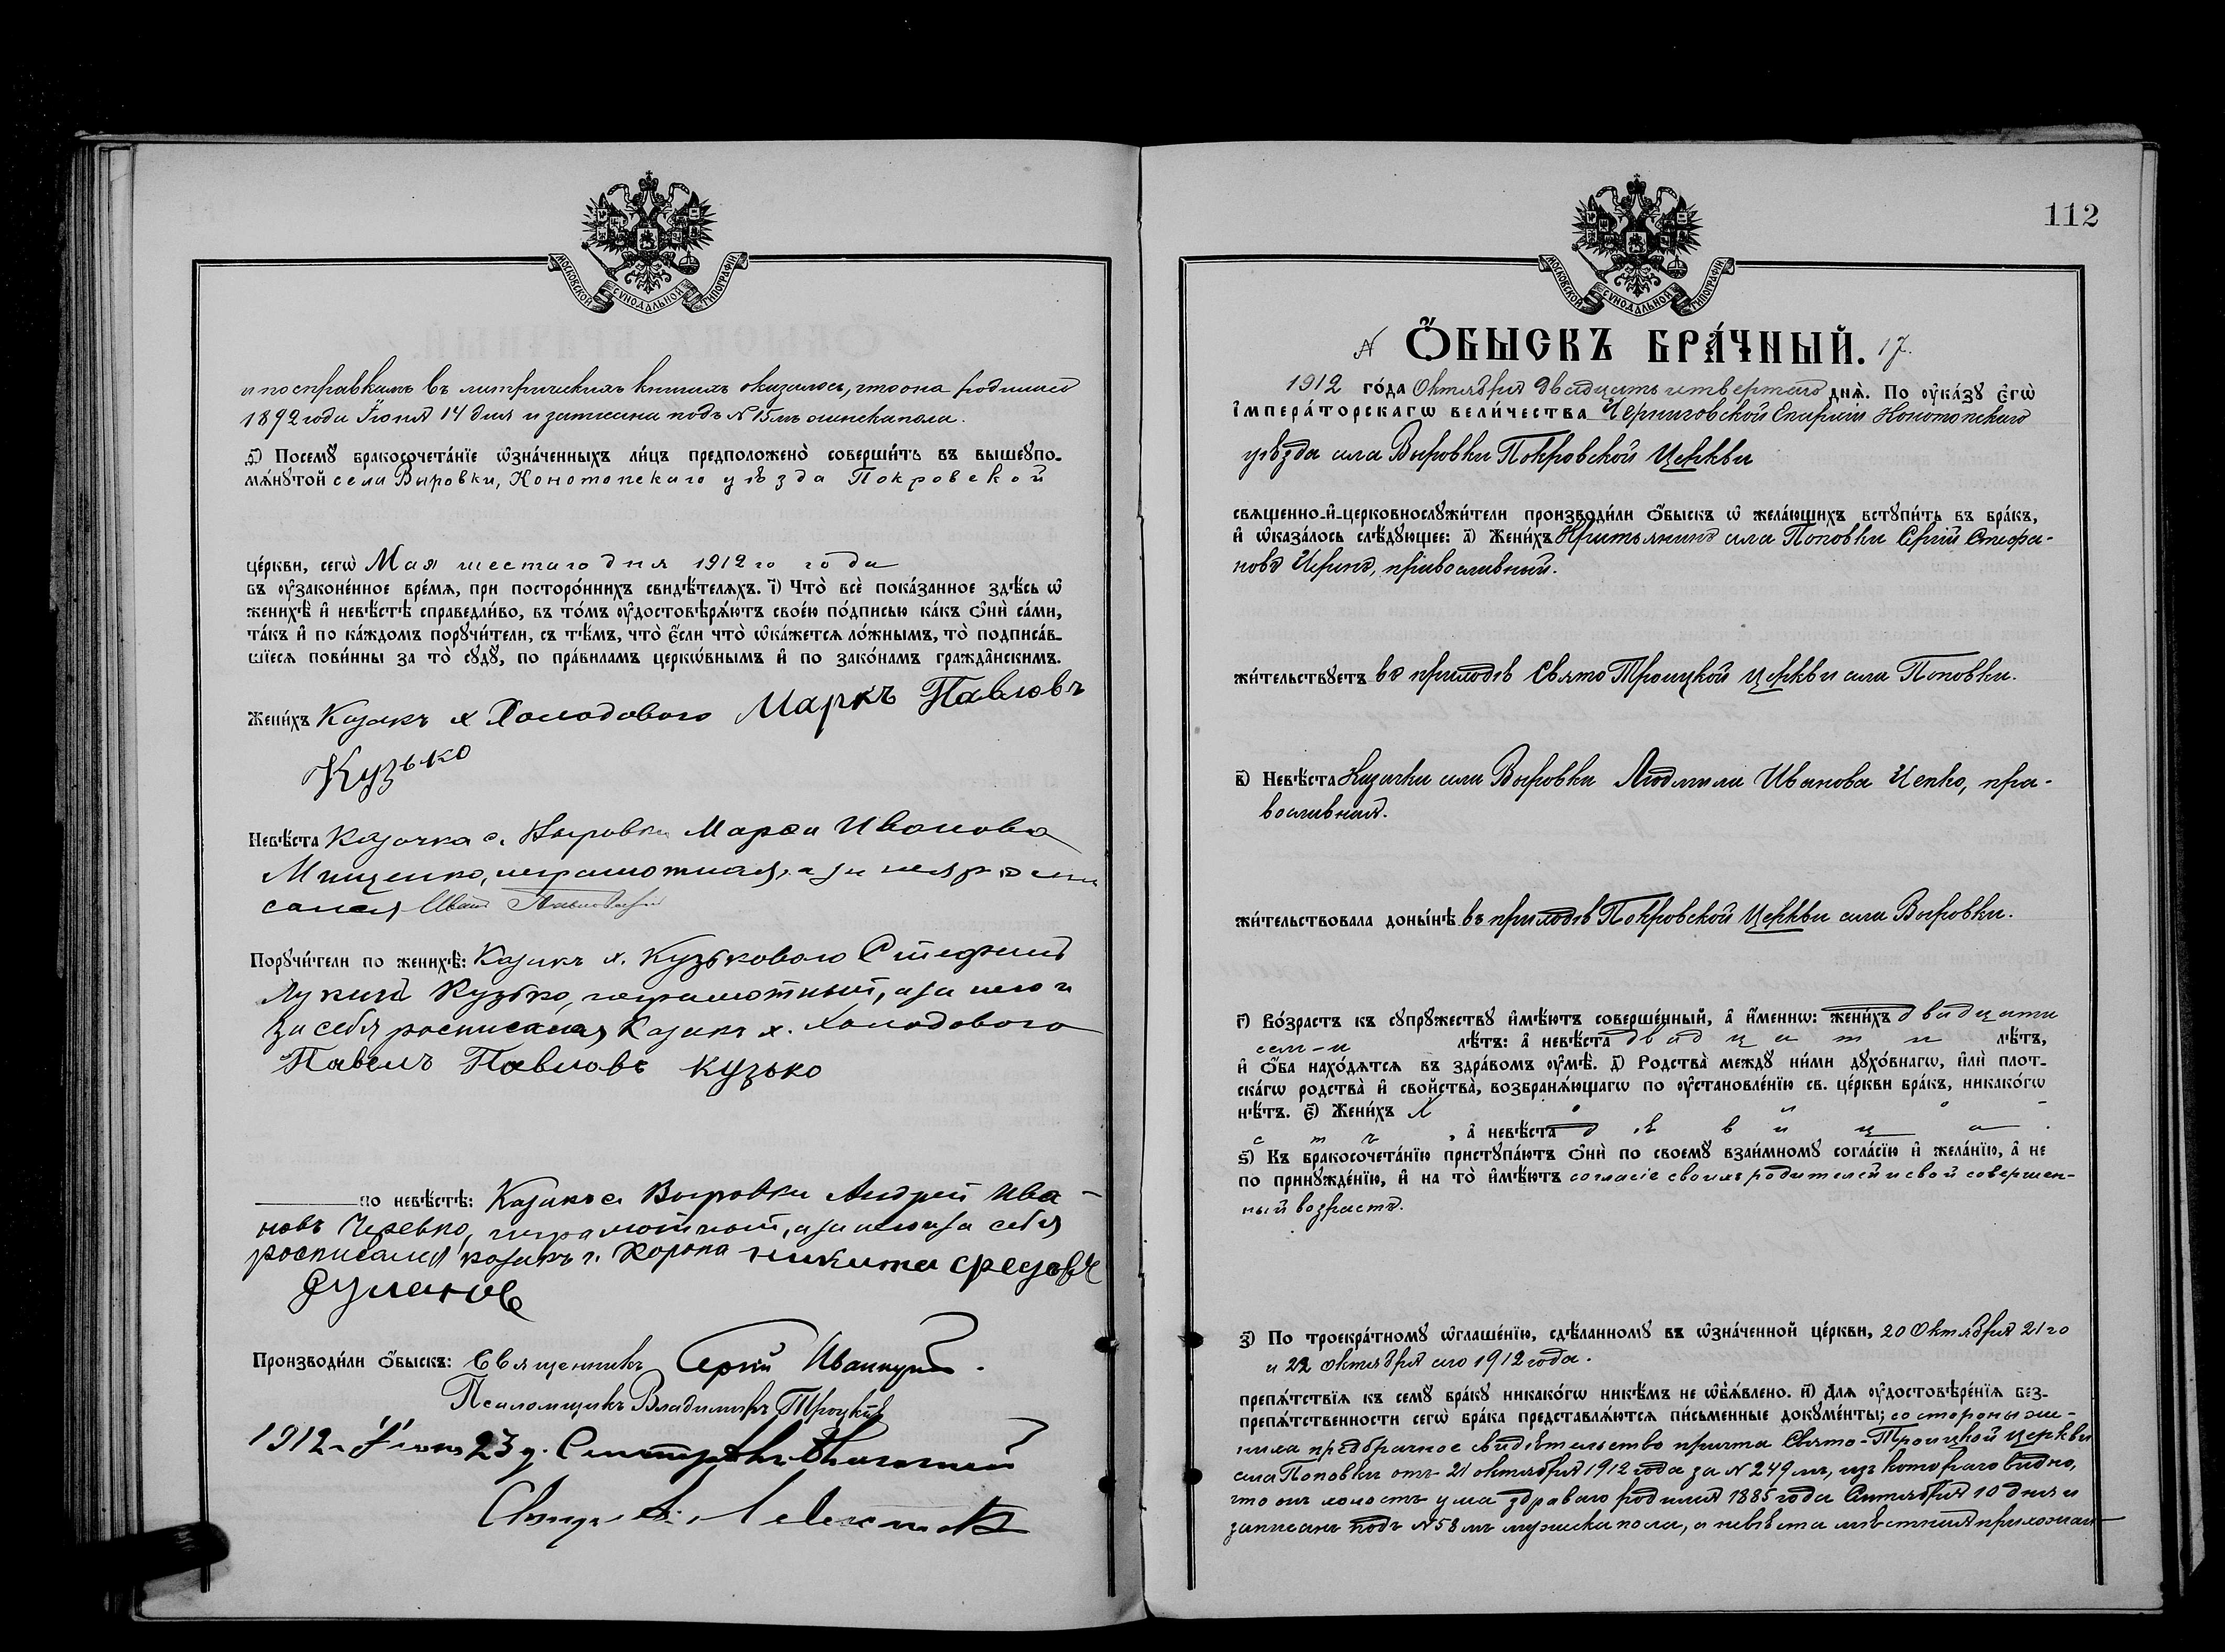 МОСКОВСКОЙ СѴНОДАЛЬНОЙ ТИПОГРАФІИ
и по справкамъ въ метрическихъ книгахъ оказалось, что она родилась
1892 года Іюня 14 дня и записана подъ № 15мъ женска пола.
д҃) Посемꙋ̀ бракосочета́нїе ѡ҆зна́ченныхъ ли́цъ предположено̀ соверши́ть въ вышеꙋпо-
мѧ́нꙋтой села Выровки, Конотопскаго уѣзда Покровской
це́ркви, сегѡ̀ Мая шестаго дня 1912 го года
въ ᲂу҆законе́нное вре́мѧ, при посторо́ннихъ свидѣ́телѧхъ. і҃) Что̀ всѐ пока́занное здѣ́сь ѡ҆
женихѣ̀ и҆ невѣ́стѣ справедли́во, въ то́мъ ᲂу҆достовѣрѧ́ютъ свое́ю по́дписью ка́къ ѻ҆нѝ са́ми,
та́къ и҆ по ка́ждомъ порꙋчи́тели, съ тѣ́мъ, что̀ є҆́сли что̀ ѡ҆ка́жетсѧ ло́жнымъ, то̀ подписа́в-
шїесѧ пови́нны за то̀ сꙋдꙋ̀, по пра́виламъ церкѡ́внымъ и҆ по зако́намъ гражда̂нскимъ.
Жени́хъ Казакъ х Холодового Маркъ Павловъ
Кузько
Невѣ́ста Казачка с. Выровки Марфа Иванова
Мищенко, неграмотная, а за нея роспи
сался Иванъ
Порꙋчи́тели по женихѣ̀: Казакъ х. Кузькового Стефанъ
Лукинъ Кузько, неграмотный, а за него и
за себя росписался Казакъ х. Холодового
Павелъ Павловъ Кузько
по невѣ́стѣ: Казакъ с Выровки Андрей Ива-
новъ Черевко, неграмотный, а за него и за себя
росписался козакъ г. Коропа никита
Производи́ли ѻ҆́быскъ: Священникъ Сергій
Псаломщикъ Владимиръ Троцкій
1912 г Іюня 23 д. Смотрѣлъ Благочинный
Свящ.
112
МОСКОВСКОЙ СѴНОДАЛЬНОЙ ТИПОГРАФІИ
№ Ѻ҆́БЫСКЪ БРА́ЧНЫЙ. 17.
1912 го́да Октября двадцать четвертаго днѧ̀. По ᲂу҆ка́зꙋ Є҆гѡ̀
І҆мпера́торскагѡ вели́чества Черниговской Епархіи Конотопскаго
уѣзда села Выровки Покровской Церкви
свѧще́нно-и҆-церковнослꙋжи́тели производи́ли ѻ҆́быскъ ѡ҆ жела́ющихъ встꙋпи́ть въ бра́къ,
и҆ ѡ҆каза́лось слѣ́дꙋющее: а҃) Жени́хъ Крестьянинъ села Поповки Сергій Стефа-
новъ Черинъ, православный.
жи́тельствꙋетъ въ приходѣ Свято Троицкой Церкви села Поповки.
в҃) Невѣ́ста Казачка села Выровки Людмила Иванова Цепко, пра-
вославная.
жи́тельствовала доны́нѣ въ приходѣ Покровской Церкви села Выровки.
г҃) Во́зрастъ къ сꙋпрꙋ́жествꙋ и҆мѣ́ютъ соверше́нный, а҆ и҆́меннѡ: жени́хъ двадцати
семи лѣ́тъ: а҆ невѣ́ста двадцати лѣ́тъ,
и҆ ѻ҆́ба нахо́дѧтсѧ въ здра́вомъ ᲂу҆мѣ̀. д҃) Родства̀ междꙋ̀ ни́ми дꙋхо́внагѡ, и҆лѝ плот-
ска́гѡ родства̀ и҆ сво́йства̀, возбранѧ́ющагѡ по ᲂу҆становле́нїю св. це́ркви бра́къ, никако́гѡ
нѣ́тъ. є҃) Жени́хъ холо-
стъ, а҆ невѣ́ста дѣвица.
ѕ҃) Къ бракосочета́нїю пристꙋпа́ютъ ѻ҆нѝ по своемꙋ̀ взаи́мномꙋ согла́сїю и҆ жела́нїю, а҆ не
по принꙋжде́нїю, и҆ на то̀ и҆мѣ́ютъ согласіе своихъ родителей и свой совершен-
ный возрастъ.
з҃) По троекра́тномꙋ ѡ҆глаше́нїю, сдѣ́ланномꙋ въ ѡ҆зна́ченной це́ркви, 20 Октября 21 го
и 22 октября сего 1912 года.
препѧ́тствїѧ къ семꙋ̀ бра́кꙋ никако́гѡ никѣ́мъ не ѡ҆б̾ѧ́влено. и҃) Длѧ ᲂу҆достовѣре́нїѧ без-
препѧ́тственности сегѡ̀ бра́ка представлѧ́ютсѧ пи́сьменные докꙋме́нты; со стороны же-
ниха предбрачное свидѣтельство причта Свято-Троицкой церкви
села Поповки отъ 21 октября 1912 года за № 249мъ, изъ котораго видно,
что онъ холостъ ума здраваго родился 1885 года Сентября 10 дня и
записанъ подъ № 58мъ мужска пола, а невѣста мѣстная прихожан-